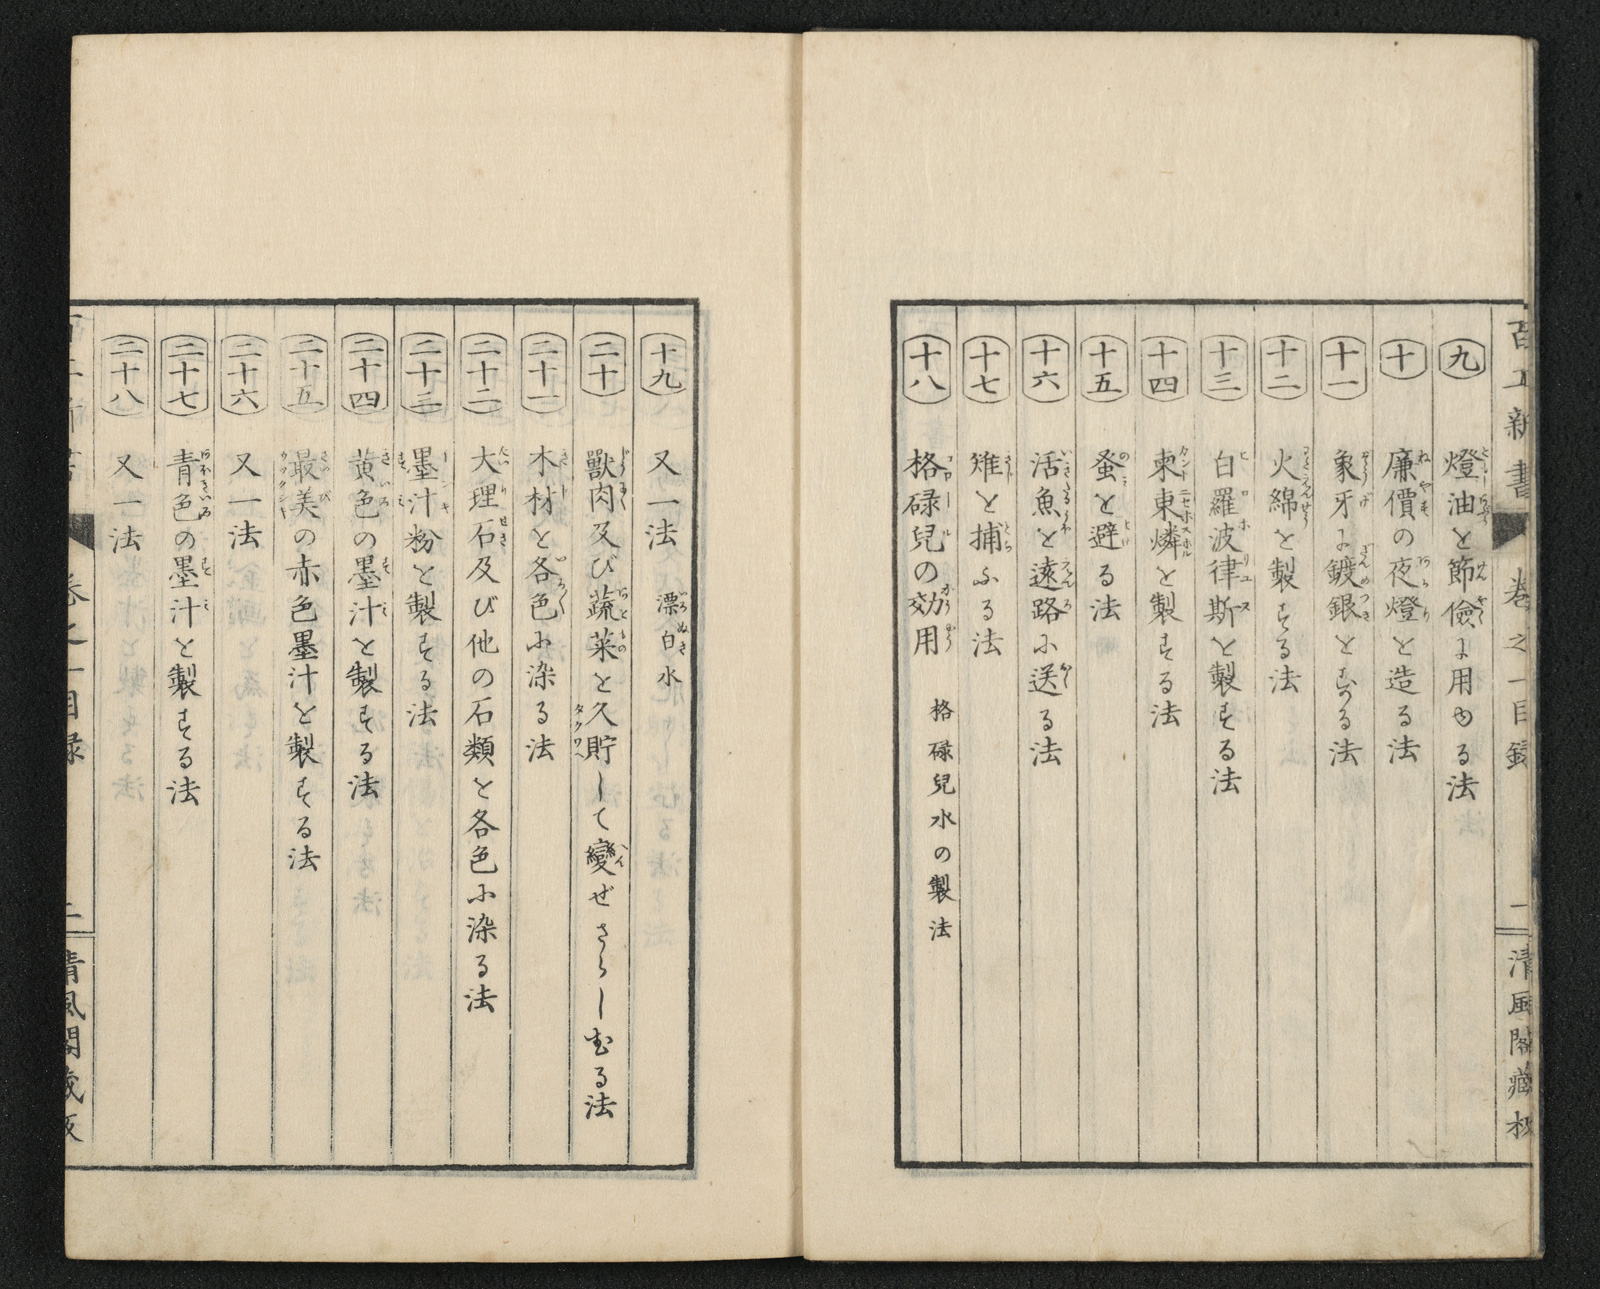 百工新書 卷之一目録 二 清風閣藏板
九 燈油を節儉に用ゆる法
十 廉價の夜燈を造る法
十一 象牙に鍍銀をする法
十二 火綿を製する法
十三 白羅波律斯を製する法
十四 東東燐を製する法
十五 蚤を避る法
十六 活魚を遠路に送る法
十七 雉を捕ふる法
十八 格碌兒の効用 格碌兒水の製法
十九 又一法 漂白水
二十 獸肉及び蔬菜を久貯して變ぜさらしむる法
二十一 木材を各色に染る法
二十二 大理石及び他の石類を各色に染る法
二十三 墨汁粉を製する法
二十四 黄色の墨汁を製する法
二十五 最美の赤色墨汁を製する法
二十六 又一法
二十七 青色の墨汁を製する法
二十八 又一法